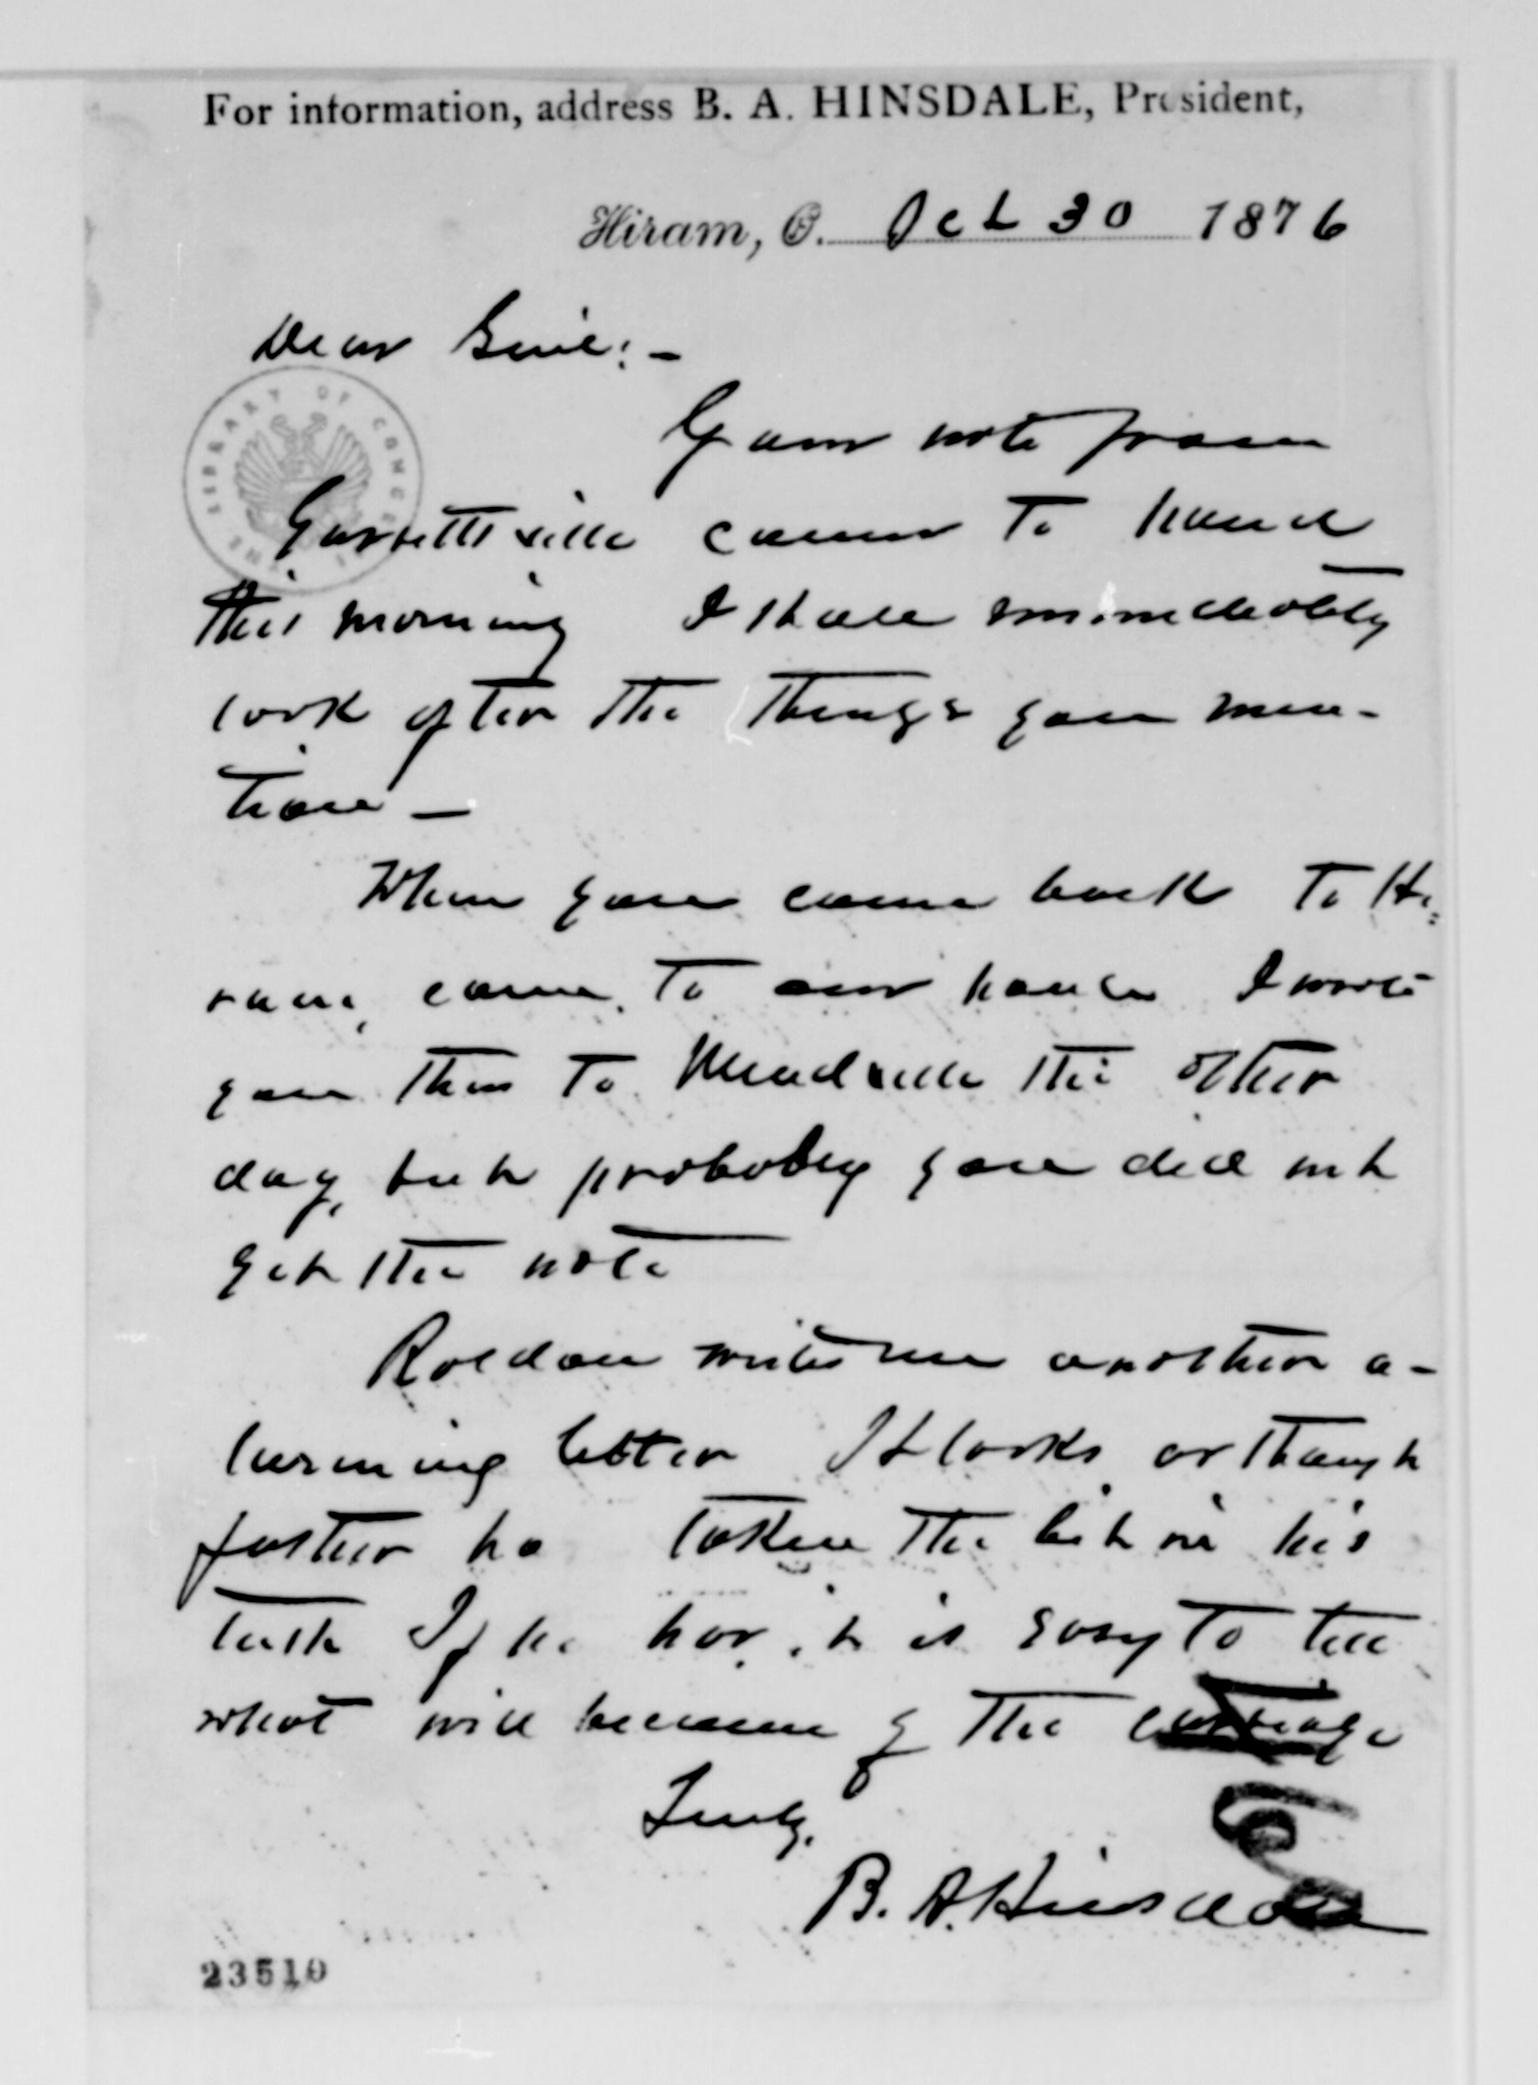 For information, address B. A. HINSDALE, President,
Hiram, O. Oct 30 1876
Dear Genl:-
Your note from
Garrettsville came to hand
this morning I shall immediately
look after the things you men-
tion -
When you come back to Hi-
ram, come to our house I wrote
you this to Meadville the other
day, but probably you did not
get the note
THE LIBRARY OF CONGRESS
writes me another a-
larming letter It looks as though
father ha taken the bit in his
teeth If he has, it is easy to tell
what will become of the carriage
Truly,
B. A. Hinsdale
23510